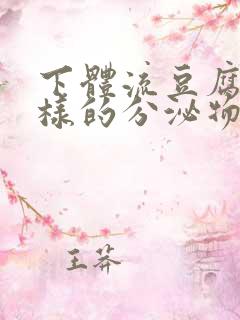 下體流豆腐
樣的分泌物
王莽